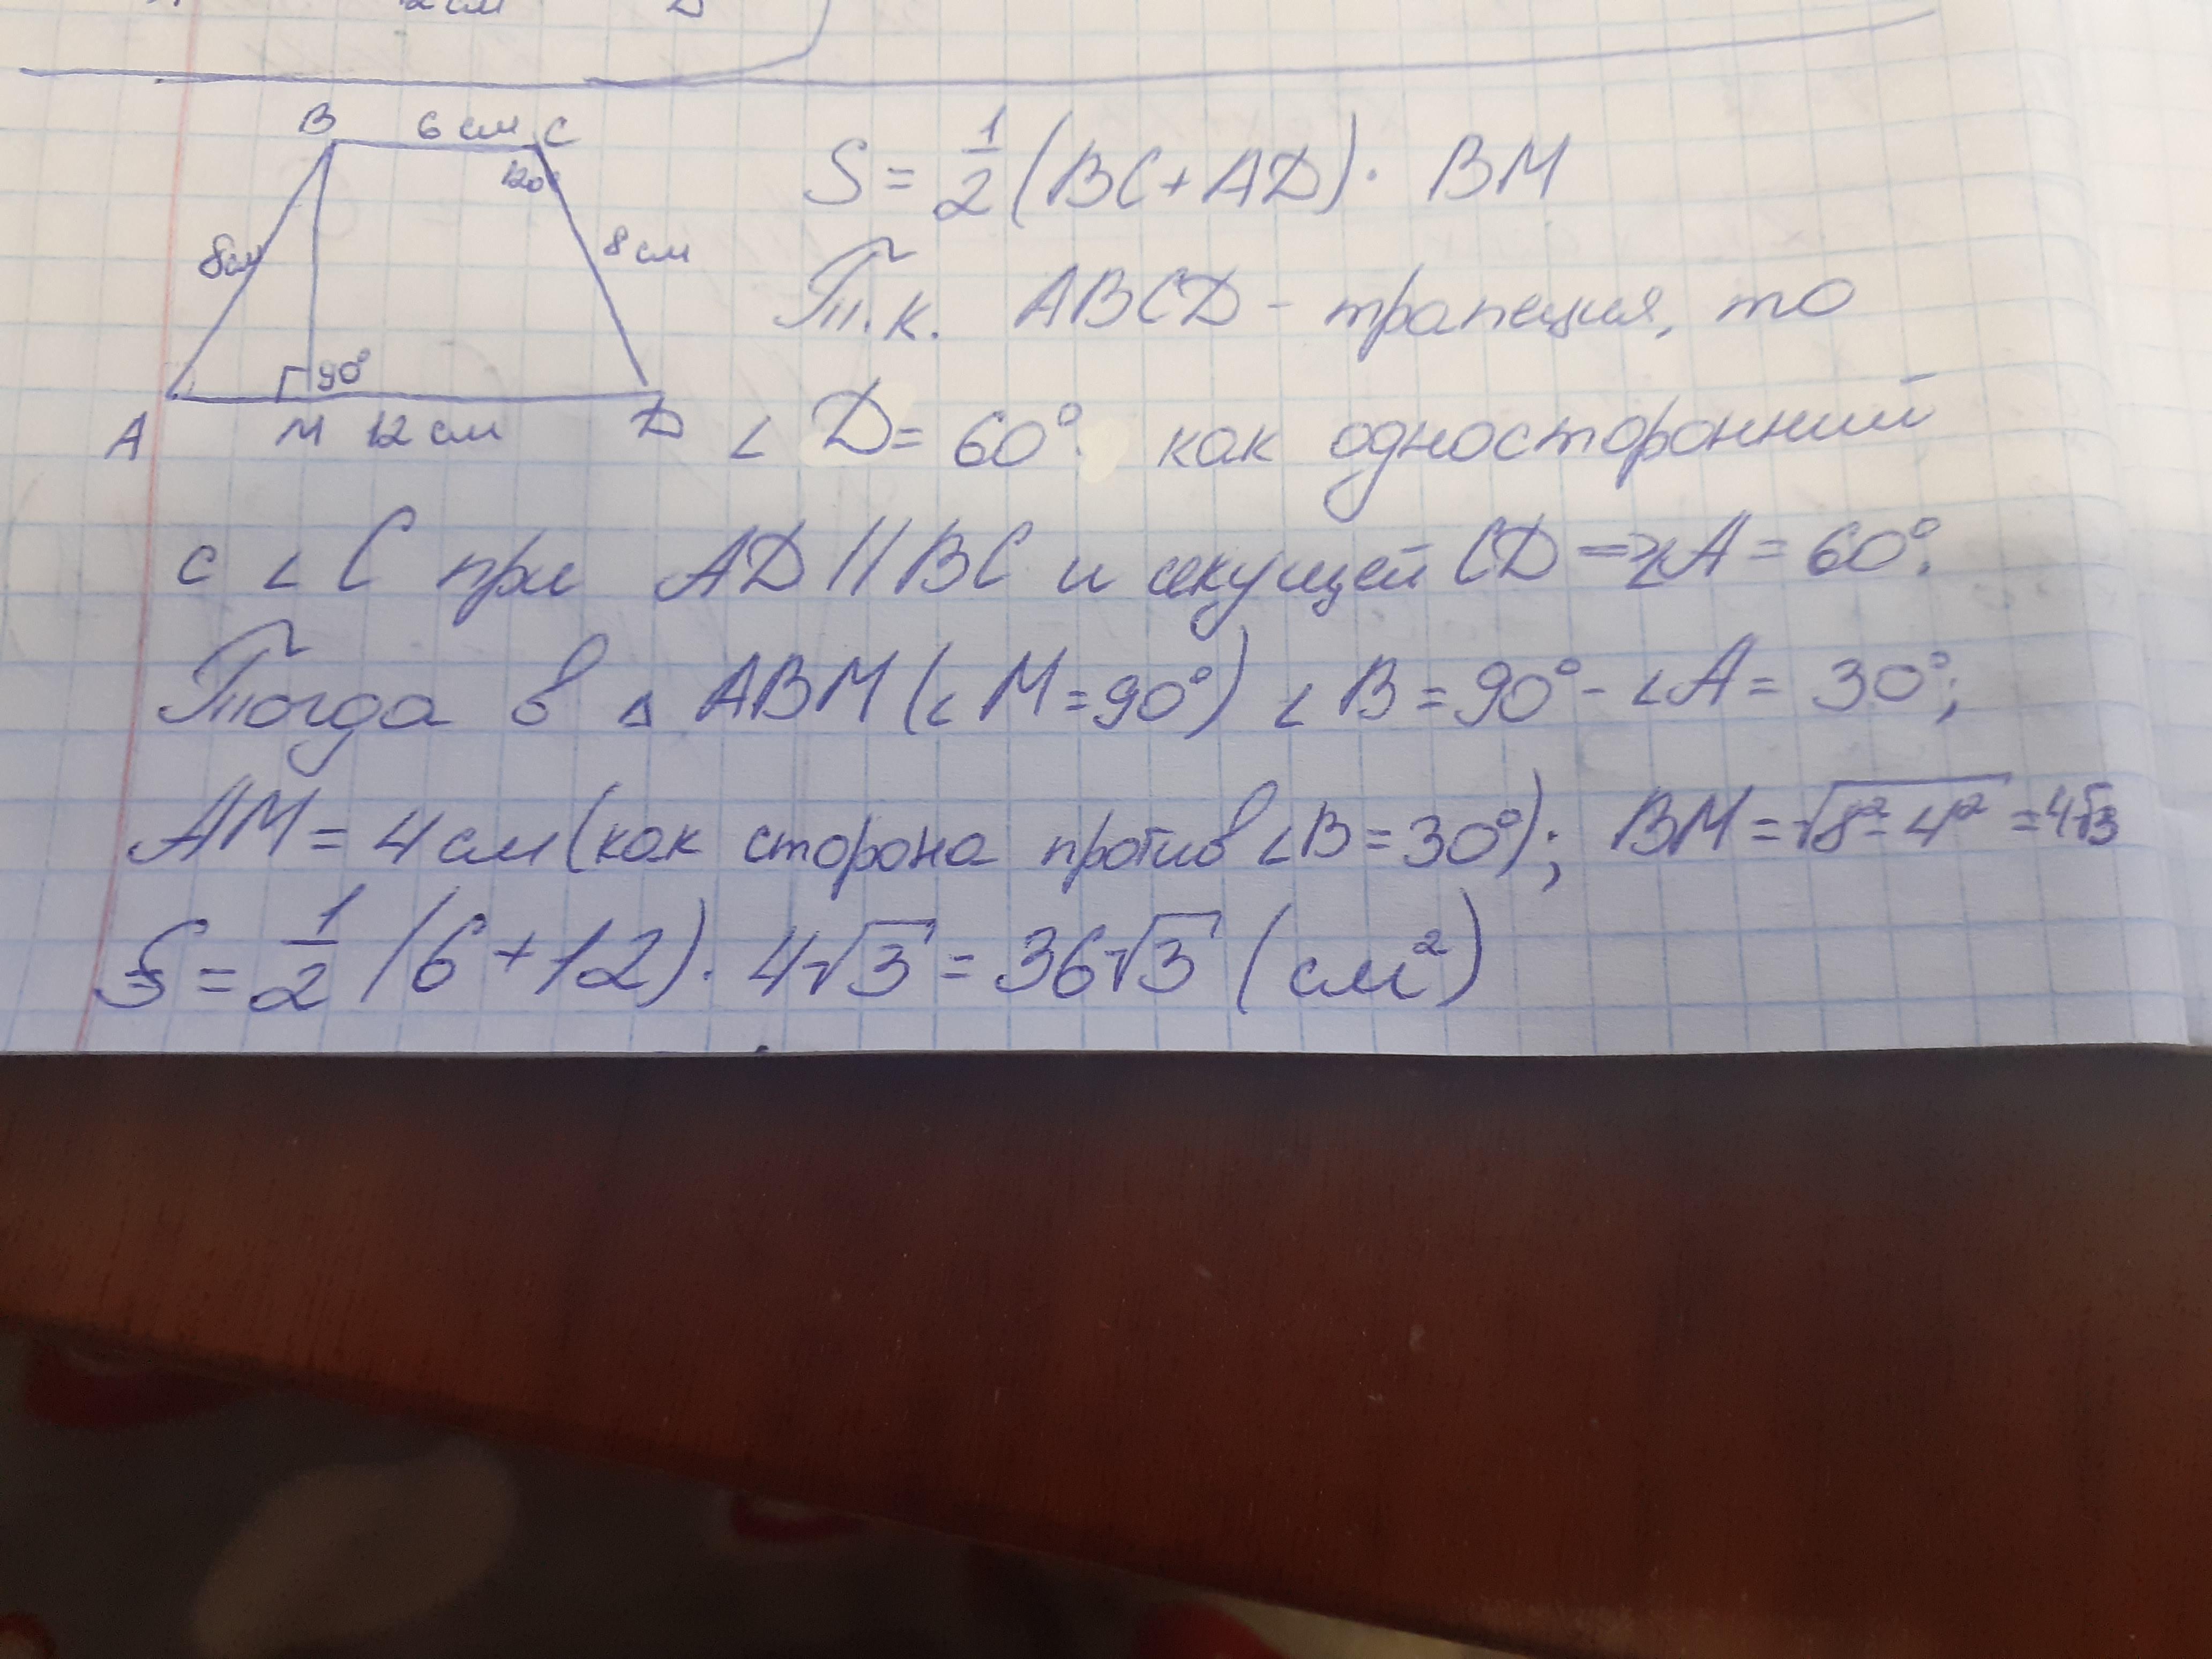 12 см D
B 6 см C
120°
8 см
8 см
90°
A M 12 см D
S = 1/2 (BC + AD) · BM
Т.к. ABCD - трапеция, то
∠ D = 60°. как односторонний
с ∠ C при AD // BC и секущей CD => ∠A = 60°.
Тогда в △ ABM (∠ M = 90°) ∠ B = 90° - ∠A = 30°;
AM = 4 см (как сторона против ∠B = 30°); BM = √8² - 4² = 4√3
S = 1/2 (6 + 12) · 4√3 = 36√3 (см²)